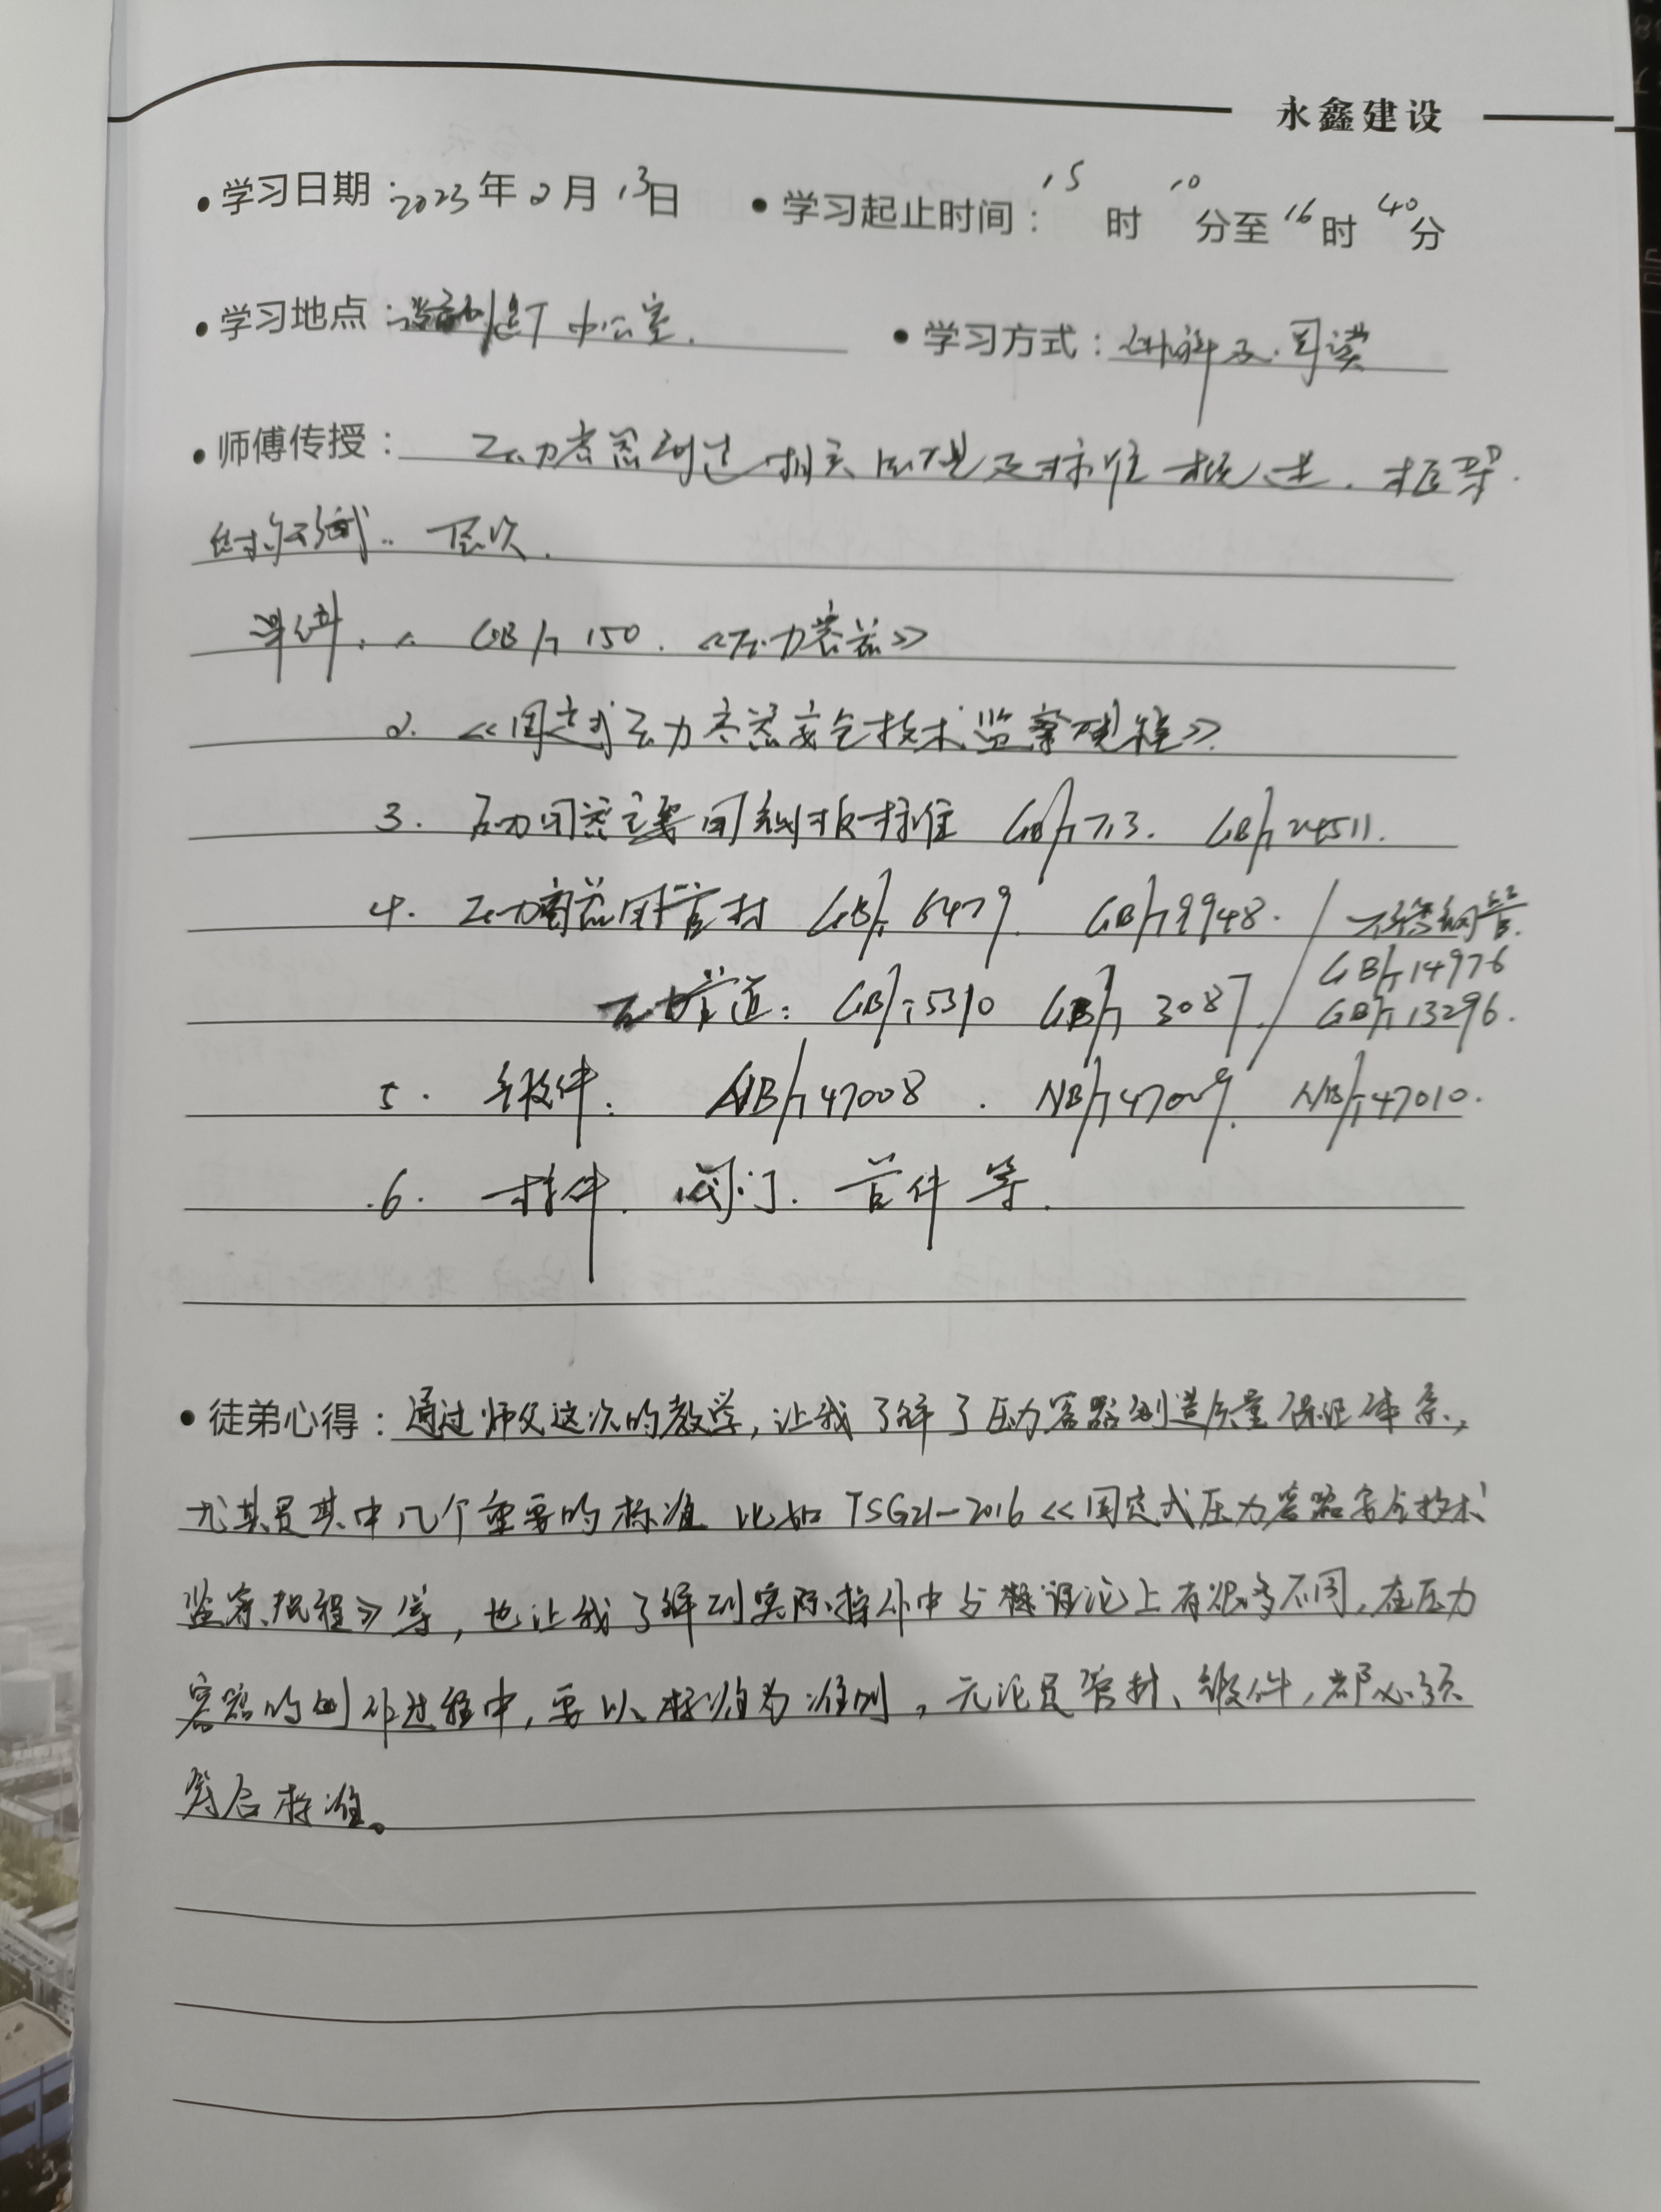 永鑫建设
学习日期：2023年2月13日 学习起止时间：15时10分至16时40分
学习地点：办公室. 学习方式：讲解及.阅读
师傅传授： 压力容器制造相关法规及标准概述. 框架.
层次.
1. GB/T 150. 《压力容器》
2. 《固定式压力容器安全技术监察规程》
3. 压力容器主要用钢板标准 GB/T 713. GB/T 24511.
4. 压力容器用管材 GB/T 6479. GB/T 9948. / 不锈钢管.
GB/T 14976
压力管道： GB/T 5310 GB/T 3087. / GB/T 13296.
5. 锻件： NB/T 47008 . NB/T 47009. NB/T 47010.
6. 阀门. 管件等.
徒弟心得：通过师父这次的教学，让我了解了压力容器制造质量保证体系，
尤其是其中几个重要的标准 比如 TSG21-2016《固定式压力容器安全技术
监察规程》等，也让我了解到实际操作中与理论上有很多不同，在压力
容器的制作过程中，要以标准为准则，无论是管材、锻件，都必须
符合标准。